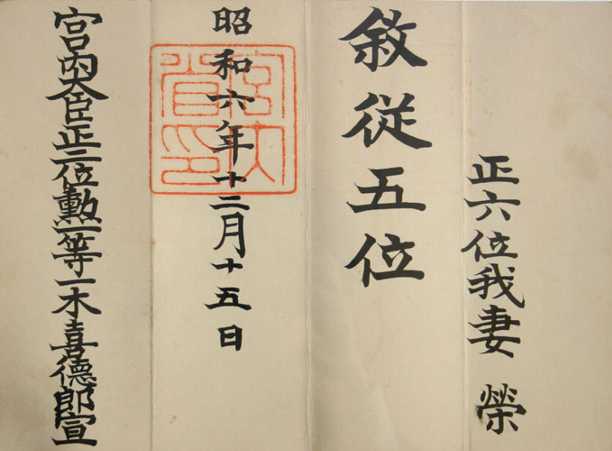 正六位我妻 榮
敘従五位
昭和六年十二月十五日
宮内省印
宮内大臣正二位勲一等一木喜德郎宣